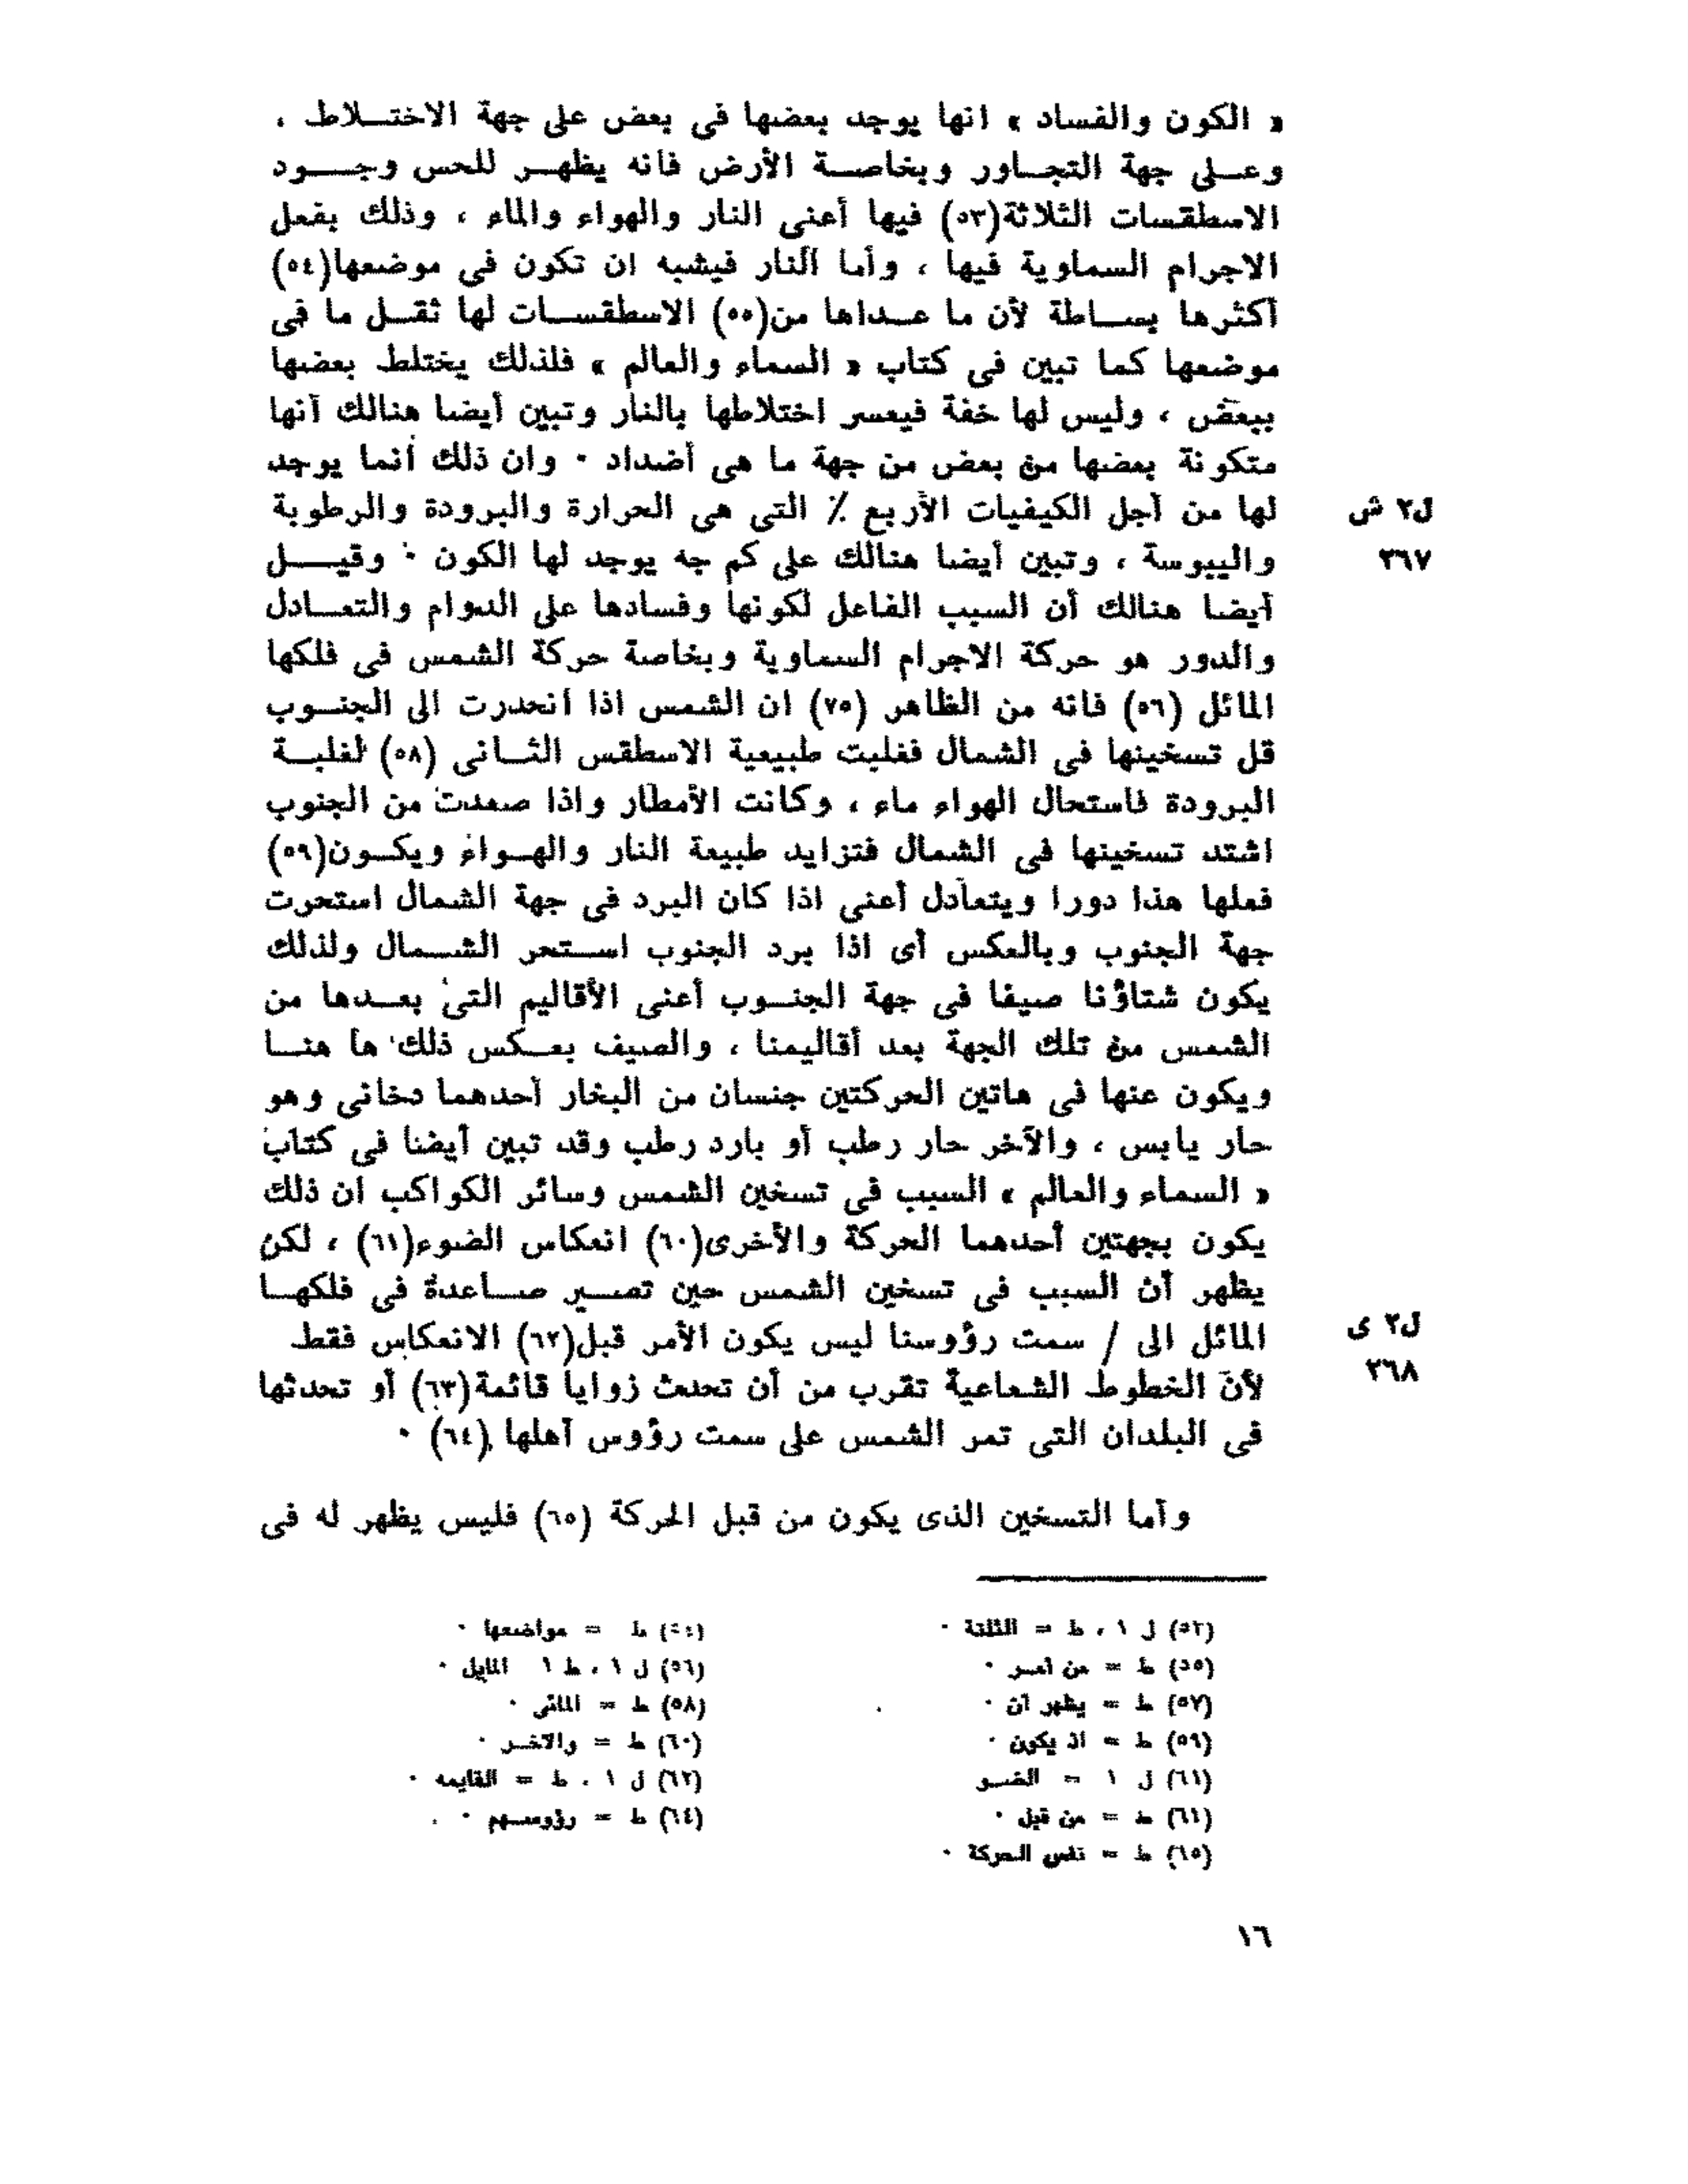 « الكون والفساد » انها يوجد بعضها فى بعض على جهة الاختـلاط ،
وعـلى جهة التجـاور وبخاصـة الأرض فانه يظهـر للحس وجـود
الاسطقسات الثلاثة(٥٣) فيها أعنى النار والهواء والماء ، وذلك بفعل
الاجرام السماوية فيها ، وأما النار فيشبه ان تكون فى موضعها(٥٤)
أكثرها بسـاطة لأن ما عـداها من(٥٥) الاسطقسـات لها ثقـل ما فى
موضعها كما تبين فى كتاب « السماء والعالم » فلذلك يختلط بعضها
ببعض ، وليس لها خفة فيعسر اختلاطها بالنار وتبين أيضا هنالك أنها
متكونة بعضها من بعض من جهة ما هى أضداد ٠ وان ذلك أنما يوجد
لها من أجل الكيفيات الأربع ٪ التى هى الحرارة والبرودة والرطوبة
ل٢ ش
واليبوسة ، وتبين أيضا هنالك على كم جه يوجد لها الكون ٠ وقيـل
٣٦٧
أيضا هنالك أن السبب الفاعل لكونها وفسادها على الدوام والتعـادل
والدور هو حركة الاجرام السماوية وبخاصة حركة الشمس فى فلكها
المائل (٥٦) فانه من الظاهر (٧٥) ان الشمس اذا انحدرت الى الجنـوب
قل تسخينها فى الشمال فغلبت طبيعية الاسطقس الثـانى (٥٨) لغلبـة
البرودة فاستحال الهواء ماء ، وكانت الأمطار واذا صعدت من الجنوب
اشتد تسخينها فى الشمال فتزايد طبيعة النار والهـواء ويكـون(٥٩)
فعلها هذا دورا ويتعادل أعنى اذا كان البرد فى جهة الشمال استحرت
جهة الجنوب وبالعكس أى اذا برد الجنوب اسـتحر الشـمال ولذلك
يكون شتاؤنا صيفا فى جهة الجنـوب أعنى الأقاليم التى بعـدها من
الشمس من تلك الجهة بعد أقاليمنا ، والصيف بعـكس ذلك ها هنـا
ويكون عنها فى هاتين الحركتين جنسان من البخار أحدهما دخانى وهو
حار يابس ، والآخر حار رطب أو بارد رطب وقد تبين أيضنا فى كتاب
« السماء والعالم » السبب فى تسخين الشمس وسائر الكواكب ان ذلك
يكون بجهتين أحدهما الحركة والأخرى(٦٠) انعكاس الضوء(٦١) ، لكن
يظهر أن السبب فى تسخين الشمس حين تصـير صـاعدة فى فلكهـا
المائل الى / سمت رؤوسنا ليس يكون الأمر قبل(٦٢) الانعكاس فقط
ل٢ ى
لأن الخطوط الشعاعية تقرب من أن تحدث زوايا قائمة(٦٣) أو تحدثها
٣٦٨
فى البلدان التى تمر الشمس على سمت رؤوس أهلها (٦٤) ٠
وأما التسخين الذى يكون من قبل الحركة (٦٥) فليس يظهر له فى
(٥٣) ل ١ ، ط = الثلثة ٠
(٥٤) ط = مواضعها ٠
(٥٥) ط = من
(٥٦) ل ١ ، ط ١ المايل ٠
(٥٧) ط = يظهر أن ٠
(٥٨) ط = المائى ٠
(٥٩) ط = اذ يكون ٠
(٦٠) ط = والآخـر ٠
(٦١) ل ١ = الضـو
(٦٢) ل ١ ، ط = القايمه ٠
(٦١) ط = من قبل ٠
(٦٤) ط = رؤوسـهم ٠
(٦٥) ط = نفس الحركة ٠
١٦